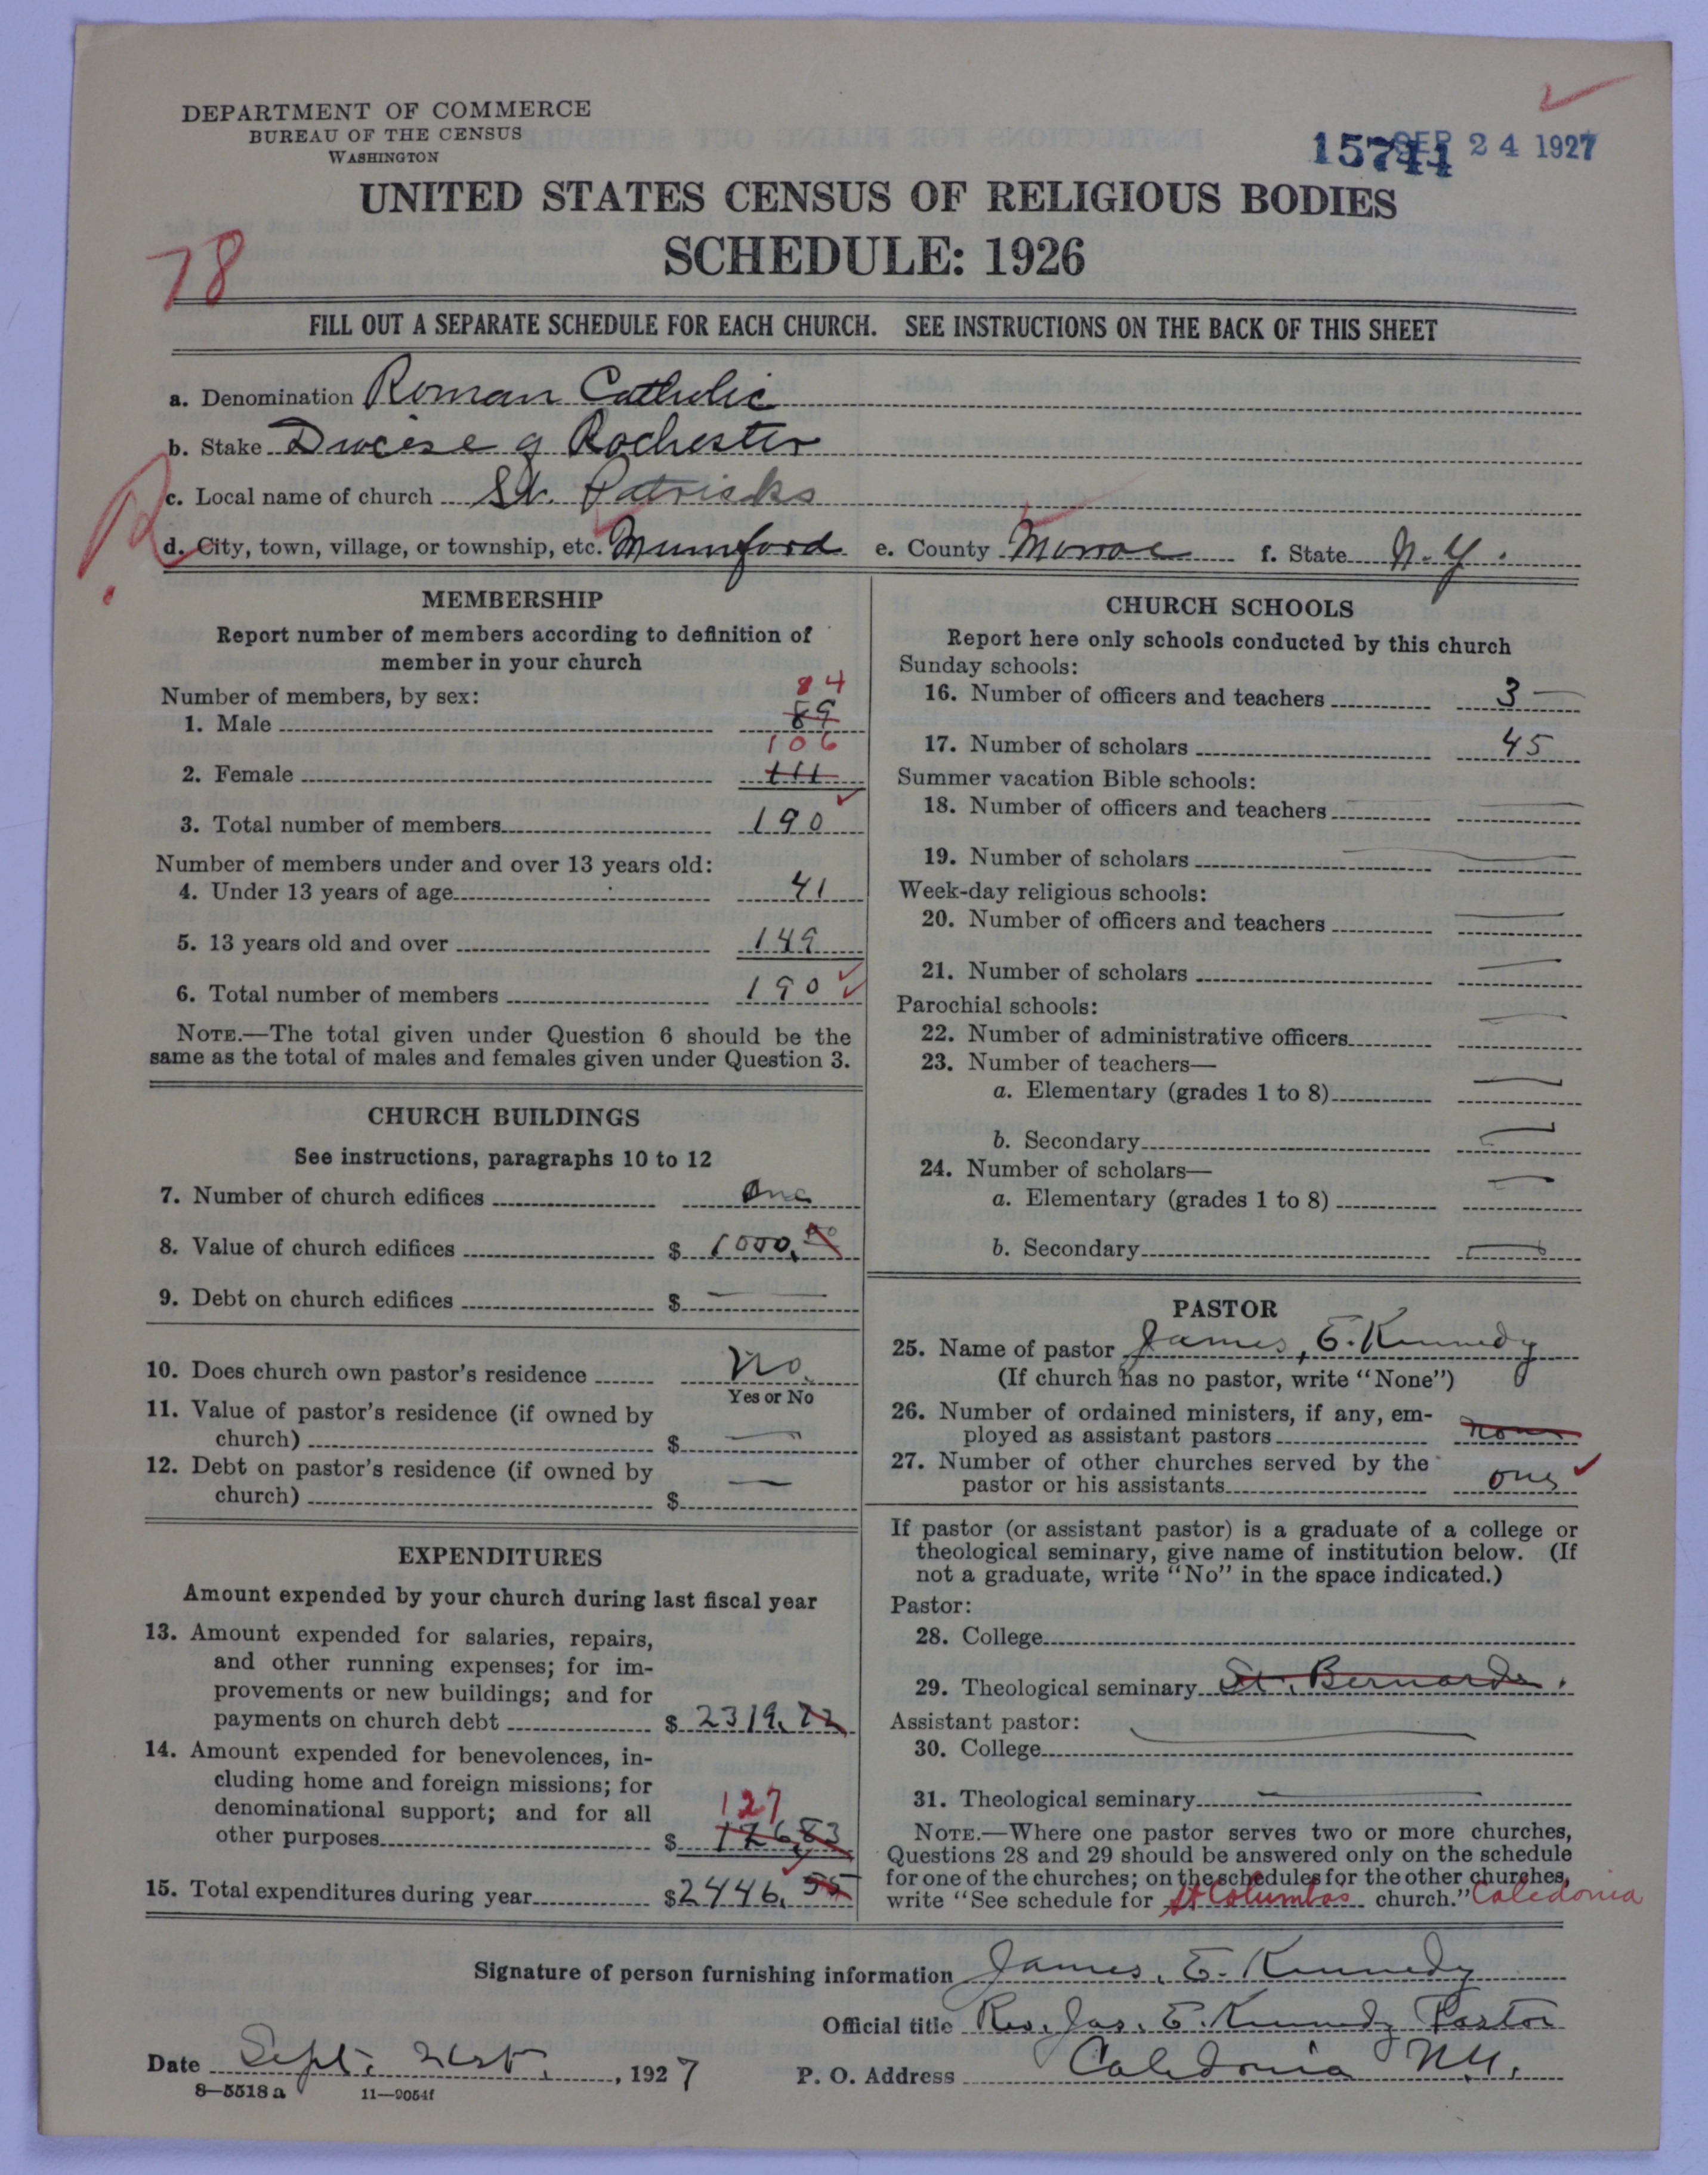 DEPARTMENT OF COMMERCE
BUREAU OF THE CENSUS
WASHINGTON
SEP 24 1927
UNITED STATES CENSUS OF RELIGIOUS BODIES
SCHEDULE: 1926
78
FILL OUT A SEPARATE SCHEDULE FOR EACH CHURCH. SEE INSTRUCTIONS ON THE BACK OF THIS SHEET
a. Denomination Roman Catholic
b. Stake Diocese of Rochester
c. Local name of church St. Patricks
d. City, town, village, or township, etc. Mumford e. County Monroe f. State N.Y.
MEMBERSHIP
Report number of members according to definition of
member in your church
Number of members, by sex:
84
1. Male 89
106
2. Female 111
3. Total number of members 190
Number of members under and over 13 years old:
4. Under 13 years of age 41
5. 13 years old and over 149
6. Total number of members 190
NOTE.—The total given under Question 6 should be the
same as the total of males and females given under Question 3.
CHURCH BUILDINGS
See instructions, paragraphs 10 to 12
7. Number of church edifices One
8. Value of church edifices $ 1000.00
9. Debt on church edifices $ —
10. Does church own pastor's residence No.
Yes or No
11. Value of pastor's residence (if owned by
church) $ —
12. Debt on pastor's residence (if owned by
church) $ —
EXPENDITURES
Amount expended by your church during last fiscal year
13. Amount expended for salaries, repairs,
and other running expenses; for im-
provements or new buildings; and for
payments on church debt $ 2319.72
14. Amount expended for benevolences, in-
cluding home and foreign missions; for
denominational support; and for all
127
other purposes $ 126.83
15. Total expenditures during year $ 2446.55
CHURCH SCHOOLS
Report here only schools conducted by this church
Sunday schools:
16. Number of officers and teachers 3 —
17. Number of scholars 45
Summer vacation Bible schools:
18. Number of officers and teachers —
19. Number of scholars —
Week-day religious schools:
20. Number of officers and teachers —
21. Number of scholars —
Parochial schools:
22. Number of administrative officers —
23. Number of teachers—
a. Elementary (grades 1 to 8) —
b. Secondary —
24. Number of scholars—
a. Elementary (grades 1 to 8) —
b. Secondary —
PASTOR
25. Name of pastor James, E. Kennedy
(If church has no pastor, write "None")
26. Number of ordained ministers, if any, em-
ployed as assistant pastors none
27. Number of other churches served by the
pastor or his assistants one
If pastor (or assistant pastor) is a graduate of a college or
theological seminary, give name of institution below. (If
not a graduate, write "No" in the space indicated.)
Pastor:
28. College
29. Theological seminary St. Bernards.
Assistant pastor:
30. College —
31. Theological seminary —
NOTE.—Where one pastor serves two or more churches,
Questions 28 and 29 should be answered only on the schedule
for one of the churches; on the schedules for the other churches,
write "See schedule for St Columbas church." Caledonia
Signature of person furnishing information James, E. Kennedy
Official title Rev. Jas. E. Kennedy Pastor
Date Sept. 21st, 1927 P. O. Address Caledonia N.Y.
8—5518 a 11—9054f